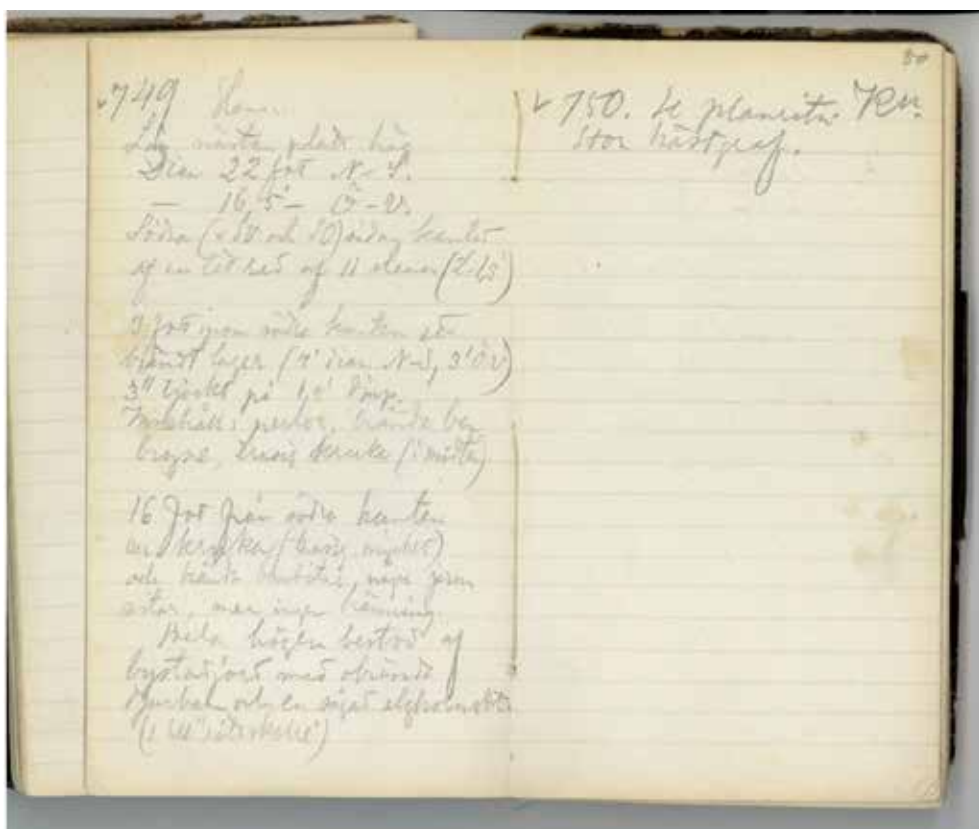 749
Låg nästan platt hög
Diam 22 fot N-S.
— 16,5 — Ö-V.
Södra (SV och SO) sidan kantad
af en tät rad af 11 stenar
3 fot inom södra kanten ett
brändt lager (4' diam N-S, 3' Ö-V)
3" tjockt på 1,5' djup.
Innehåll: perlor, brända ben
brons, kruka (i midten)
16 fot från södra kanten
en kruka
och brända benbitar, några jern
bitar, men ingen bränning.
Hela högen bestod af
bystadsjord med obrända
djurben och en sågad elghornsbit
50
750. Se planritn. KM.
Stor hästgraf.